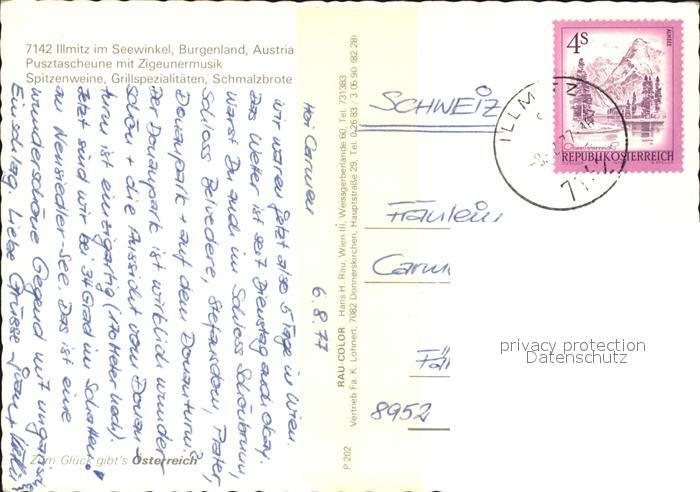 7142 Illmitz im Seewinkel, Burgenland, Austria
Pusztascheune mit Zigeunermusik
Spitzenweine, Grillspezialitäten, Schmalzbrote
Hoi Carmen
6.8.77
wir waren jetzt also 5 Tage in Wien.
Das Wetter ist seit Dienstag auch okay.
Warst Du auch im Schloss Schönbrunn,
Schloss Belvedere, Stefansdom, Prater,
Donaupark + auf dem Donauturm?
Der Donaupark ist wirklich wunder
schön + die Aussicht vom Donau
turm ist einzigartig
Jetzt sind wir bei 34 Grad im Schatten
am Neusiedler-See. Das ist eine
wunderschöne Gegend mit
Einschlag. Liebe Grüsse
Zum Glück gibt's Österreich
P 202
RAU-COLOR Hans H. Rau, Wien III, Weissgerberlände 60, Tel. 731383
Vertrieb Fa. K. Lohnert, 7082 Donnerskirchen, Hauptstraße 29, Tel. 0 26 83 / 3 05 90 (82 28)
4S
ALMSEE
REPUBLIK ÖSTERREICH
ILLMITZ
SCHWEIZ
Fräulein
Carm
8952
privacy protection
Datenschutz